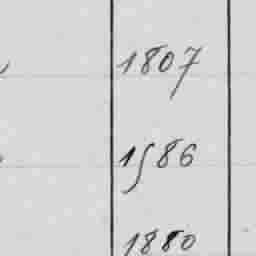 1807
1586
1880